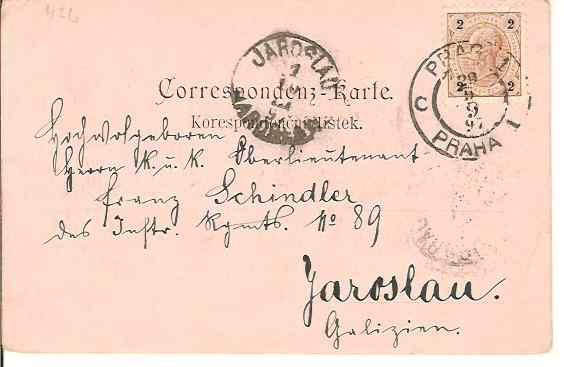 426
2 2
2 2
PRAG 1
29
9
97
C
PRAHA 1
JAROSLAU
1
Correspondenz-Karte.
Korespondenční lístek.
Hochwolgeboren
Herrn k. u. k. Oberlieutenant
Franz Schindler
des Inftr. Rgmts. No 89
Jaroslau.
Galizien.